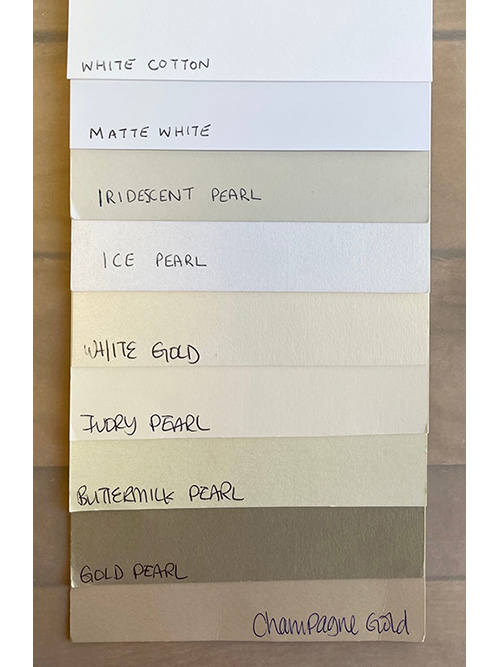 WHITE COTTON
MATTE WHITE
IRIDESCENT PEARL
ICE PEARL
WHITE GOLD
IVORY PEARL
BUTTERMILK PEARL
GOLD PEARL
Champagne Gold